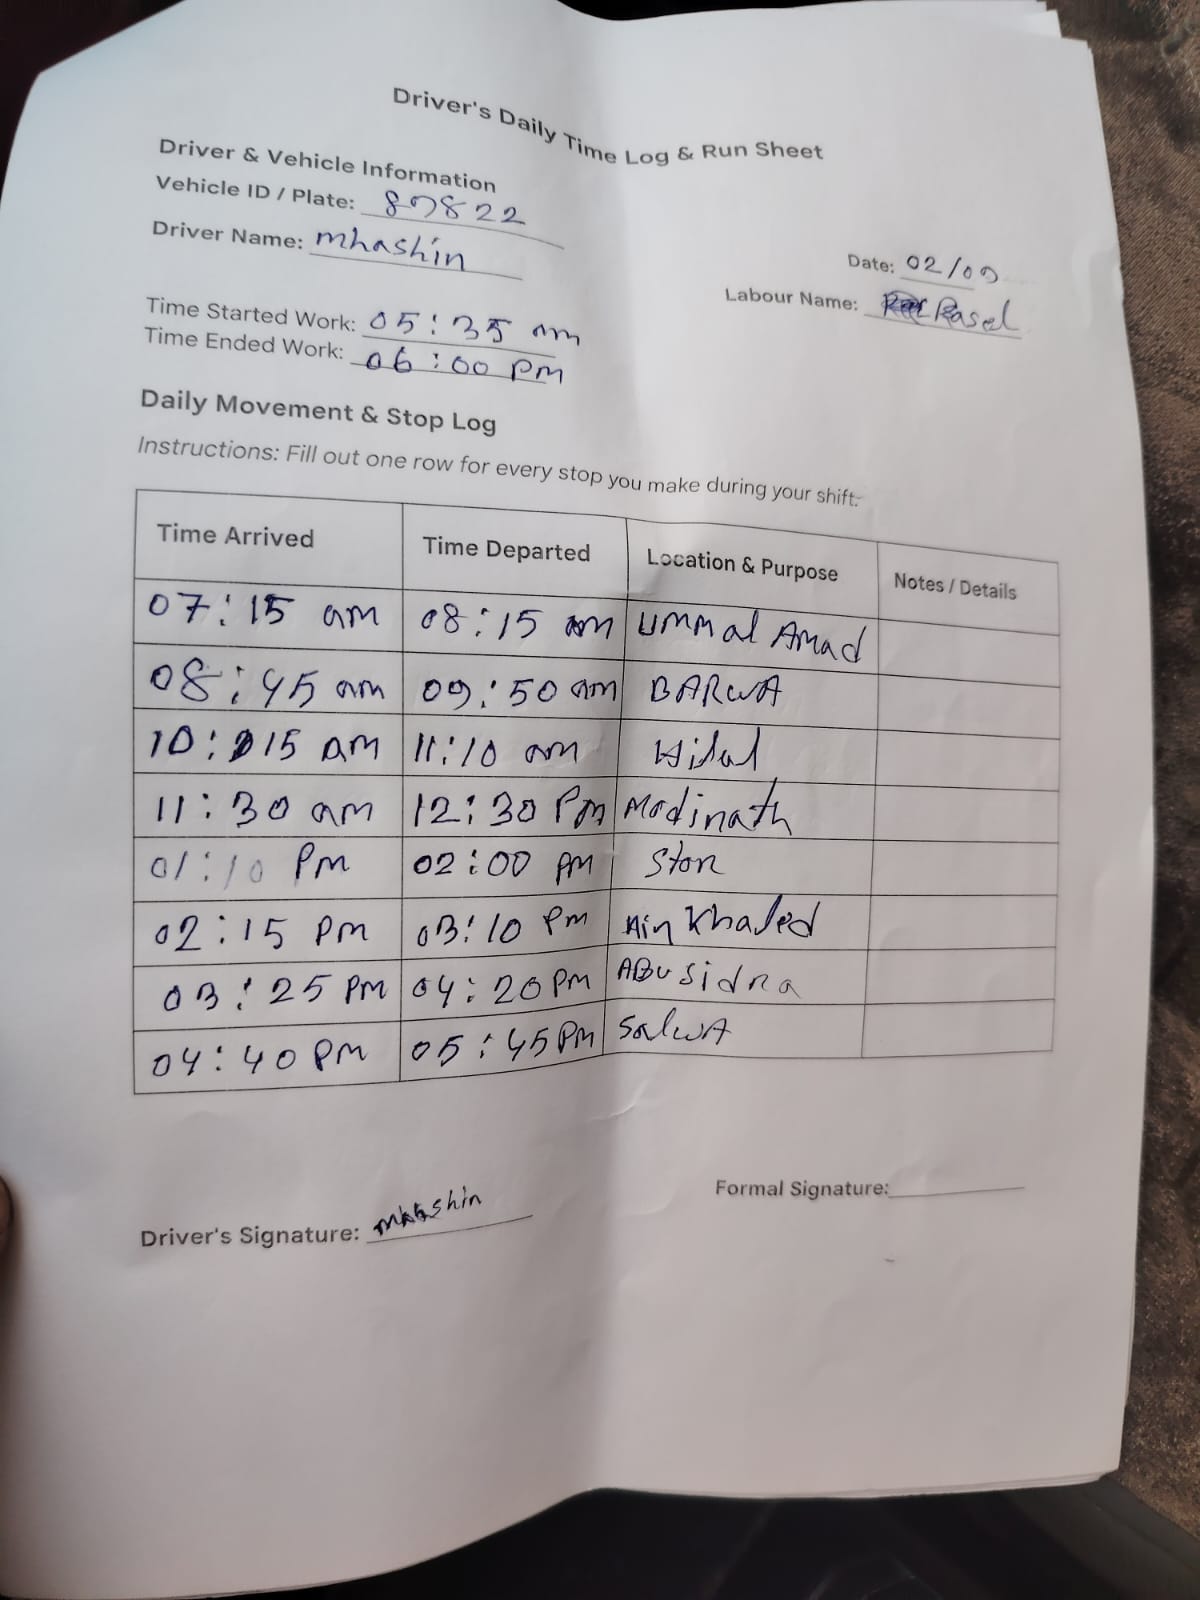 Driver's Daily Time Log & Run Sheet
Driver & Vehicle Information
Vehicle ID / Plate: 87822
Driver Name: mhashin
Date: 02/09
Labour Name: Rasel
Time Started Work: 05:35 am
Time Ended Work: 06:00 PM
Daily Movement & Stop Log
Instructions: Fill out one row for every stop you make during your shift.
Time Arrived Time Departed Location & Purpose Notes / Details
07:15 am 08:15 am Ummal Amad
08:45 am 09:50 am BARWA
10:15 am 11:10 am Hilal
11:30 am 12:30 Pm Madinath
01:10 Pm 02:00 PM Stor
02:15 Pm 03:10 Pm Ain Khaled
03:25 PM 04:20 PM ABu Sidra
04:40 PM 05:45 PM SalwA
Driver's Signature: mhashin
Formal Signature: